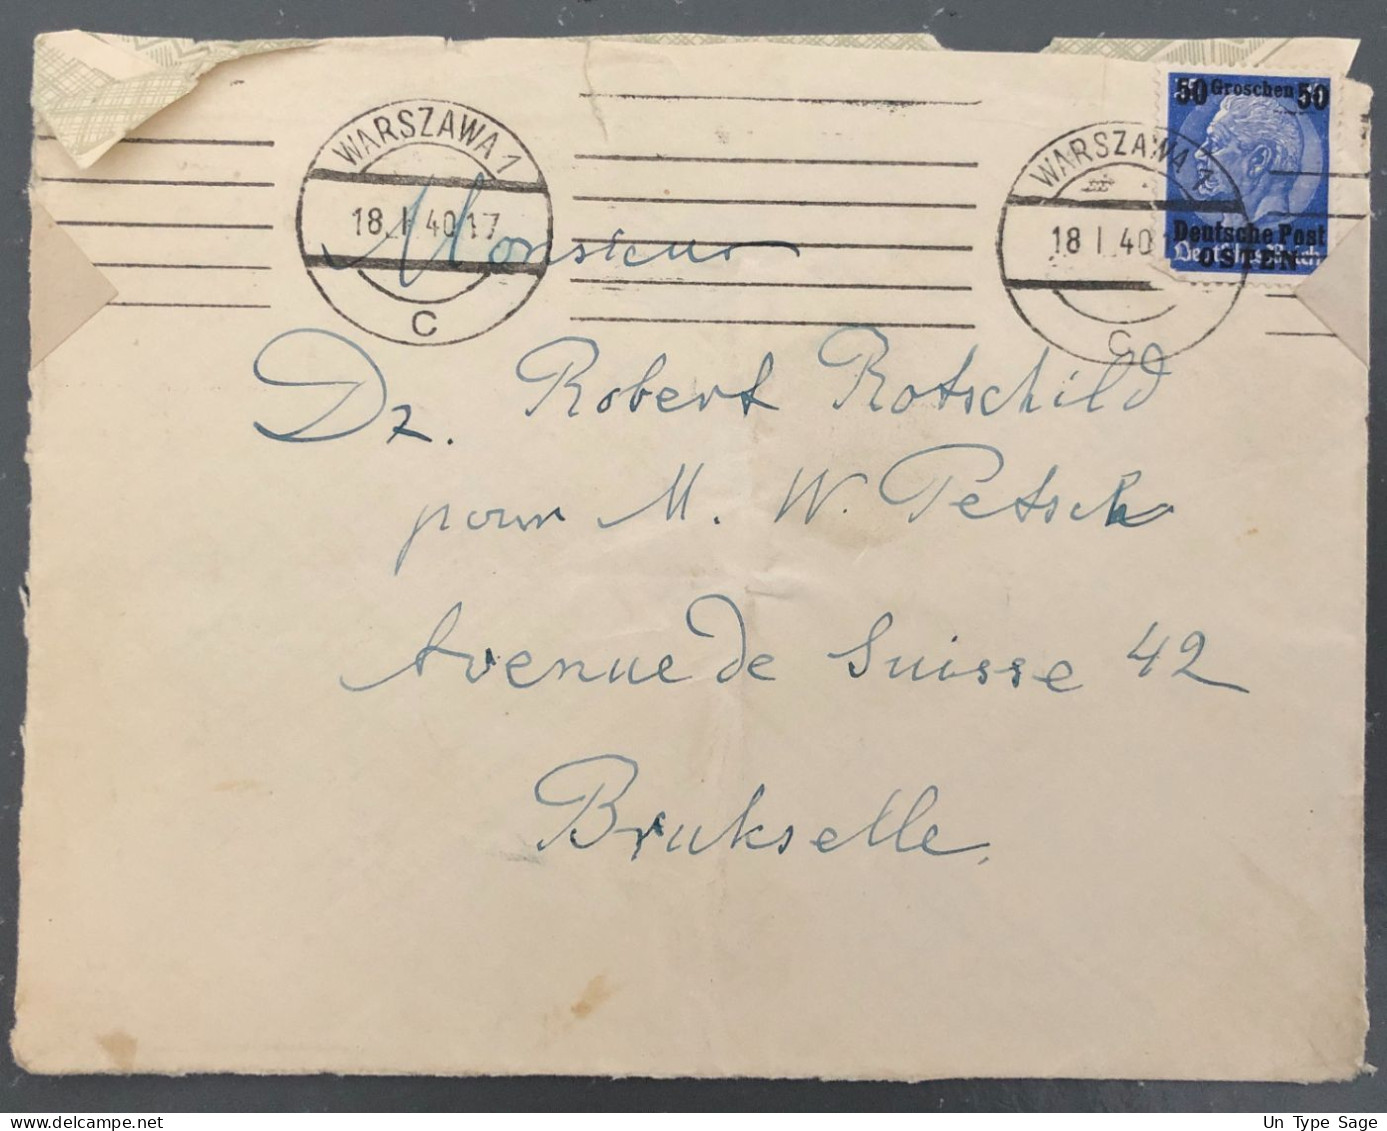 50 Groschen 50
Deutsche Post
OSTEN
Deutsches Reich
WARSZAWA 1
18. I 40 17
C
WARSZAWA 1
18 I 40 1
C
Monsieur
Dr. Robert Rotschild
pour M. W. Petsch
Avenue de Suisse 42
Brukselle,
Un Type Sage